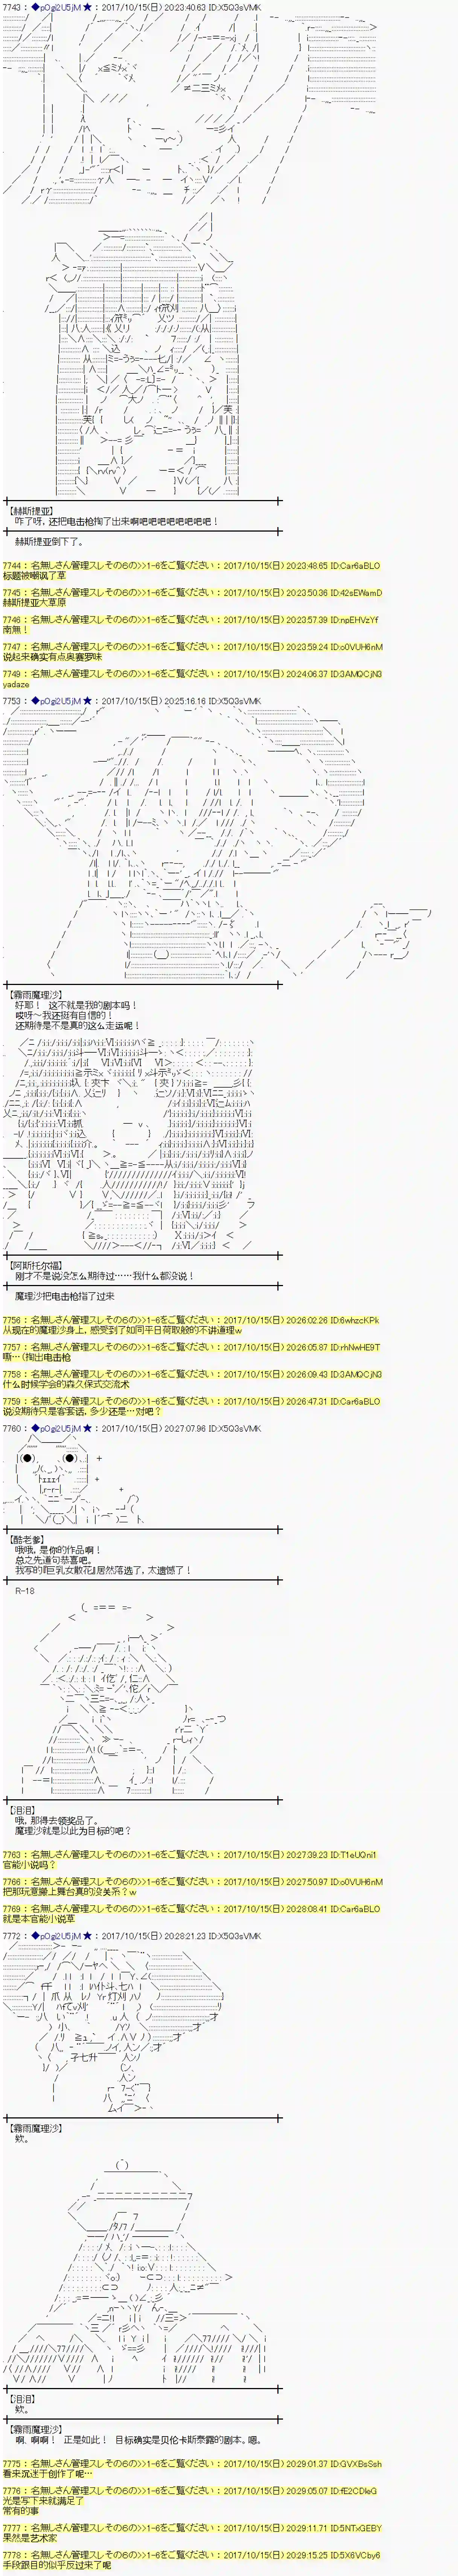 7743 : ◆pOgi2U5jM ★ : 2017/10/15(日) 20:23:40.63 ID:X5Q3sVMK
【赫斯提亚】
咋了呀，还把电击枪掏了出来啊吧吧吧吧吧吧吧吧！
赫斯提亚倒下了。
7744 : 名無しさん管理スレその6の>>1-6をご覧ください : 2017/10/15(日) 20:23:48.65 ID:Car6aBLO
标题被嘲讽了草
7745 : 名無しさん管理スレその6の>>1-6をご覧ください : 2017/10/15(日) 20:23:50.36 ID:42sEWamD
赫斯提亚大草原
7746 : 名無しさん管理スレその6の>>1-6をご覧ください : 2017/10/15(日) 20:23:57.39 ID:npEHVzYf
南無！
7747 : 名無しさん管理スレその6の>>1-6をご覧ください : 2017/10/15(日) 20:23:59.24 ID:o0VUH6nM
说起来确实有点奥赛罗味
7749 : 名無しさん管理スレその6の>>1-6をご覧ください : 2017/10/15(日) 20:24:06.37 ID:3AMQCjN3
yadaze
7753 : ◆pOgi2U5jM ★ : 2017/10/15(日) 20:25:16.16 ID:X5Q3sVMK
【霧雨魔理沙】
好耶！　这不就是我的剧本吗！
哎呀～我还挺有自信的！
还期待是不是真的这么走运呢！
【阿斯托尔福】
刚才不是说没怎么期待过……我什么都没说！
魔理沙把电击枪指了过来
7756 : 名無しさん管理スレその6の>>1-6をご覧ください : 2017/10/15(日) 20:26:02.26 ID:6whzcKPk
从现在的魔理沙身上，感受到了如同平日荷取般的不讲道理w
7757 : 名無しさん管理スレその6の>>1-6をご覧ください : 2017/10/15(日) 20:26:05.87 ID:rhNwHE9T
嘶…（掏出电击枪
7758 : 名無しさん管理スレその6の>>1-6をご覧ください : 2017/10/15(日) 20:26:09.43 ID:3AMQCjN3
什么时候学会的森久保式交流术
7759 : 名無しさん管理スレその6の>>1-6をご覧ください : 2017/10/15(日) 20:26:47.31 ID:Car6aBLO
说没期待只是客套话，多少还是…对吧？
7760 : ◆pOgi2U5jM ★ : 2017/10/15(日) 20:27:07.96 ID:X5Q3sVMK
【酷老爹】
哦哦，是你的作品啊！
总之先道句恭喜吧。
我写的『巨乳女散花』居然落选了，太遗憾了！
R-18
【泪泪】
哦，那得去领奖品了。
魔理沙就是以此为目标的吧？
7763 : 名無しさん管理スレその6の>>1-6をご覧ください : 2017/10/15(日) 20:27:39.23 ID:T1eUQni1
官能小说吗？
7766 : 名無しさん管理スレその6の>>1-6をご覧ください : 2017/10/15(日) 20:27:50.97 ID:o0VUH6nM
把那玩意搬上舞台真的没关系？w
7769 : 名無しさん管理スレその6の>>1-6をご覧ください : 2017/10/15(日) 20:28:08.41 ID:Car6aBLO
就是本官能小说草
7772 : ◆pOgi2U5jM ★ : 2017/10/15(日) 20:28:21.23 ID:X5Q3sVMK
【霧雨魔理沙】
欸。
【泪泪】
欸。
【霧雨魔理沙】
啊，啊啊！　正是如此！　目标确实是贝伦卡斯泰露的剧本。嗯。
7775 : 名無しさん管理スレその6の>>1-6をご覧ください : 2017/10/15(日) 20:29:01.37 ID:GVXBsSsh
看来沉迷于创作了呢…
7776 : 名無しさん管理スレその6の>>1-6をご覧ください : 2017/10/15(日) 20:29:05.07 ID:fE2CDIeG
光是写下来就满足了
常有的事
7777 : 名無しさん管理スレその6の>>1-6をご覧ください : 2017/10/15(日) 20:29:11.71 ID:5NTxGEBY
果然是艺术家
7778 : 名無しさん管理スレその6の>>1-6をご覧ください : 2017/10/15(日) 20:29:15.25 ID:5X6VCby6
手段跟目的似乎反过来了呢